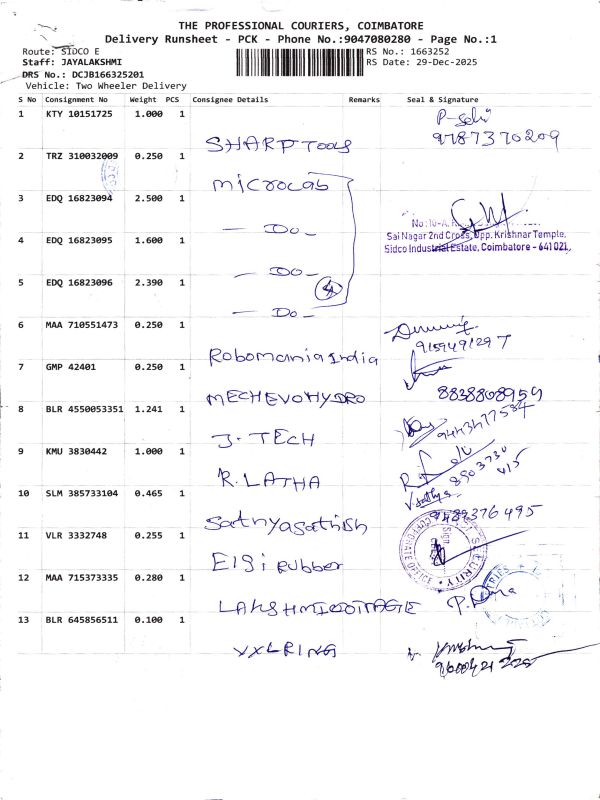 THE PROFESSIONAL COURIERS, COIMBATORE
Delivery Runsheet - PCK - Phone No.:9047080280 - Page No.:1
Route: SIDCO E RS No.: 1663252
Staff: JAYALAKSHMI RS Date: 29-Dec-2025
DRS No.: DCJB166325201
Vehicle: Two Wheeler Delivery
S No Consignment No Weight PCS Consignee Details Remarks Seal & Signature
1 KTY 10151725 1.000 1
SHARP Tools
9787370209
2 TRZ 310032009 0.250 1
microlab
3 EDQ 16823094 2.500 1
— Do —
Sai Nagar 2nd Cross, Opp. Krishnar Temple,
Sidco Industrial Estate, Coimbatore - 641 021.
4 EDQ 16823095 1.600 1
— Do —
5 EDQ 16823096 2.390 1
4
— Do —
6 MAA 710551473 0.250 1
9159491297
Robomania India
7 GMP 42401 0.250 1
MECHEVOHYDRO
8838808959
8 BLR 4550053351 1.241 1
J. TECH
9443477584
9 KMU 3830442 1.000 1
R. LATHA
10 SLM 385733104 0.465 1
Sathyasathish
9489376495
11 VLR 3332748 0.255 1
Elgi rubber
SECURITY
12 MAA 715373335 0.280 1
13 BLR 645856511 0.100 1
VXLRING